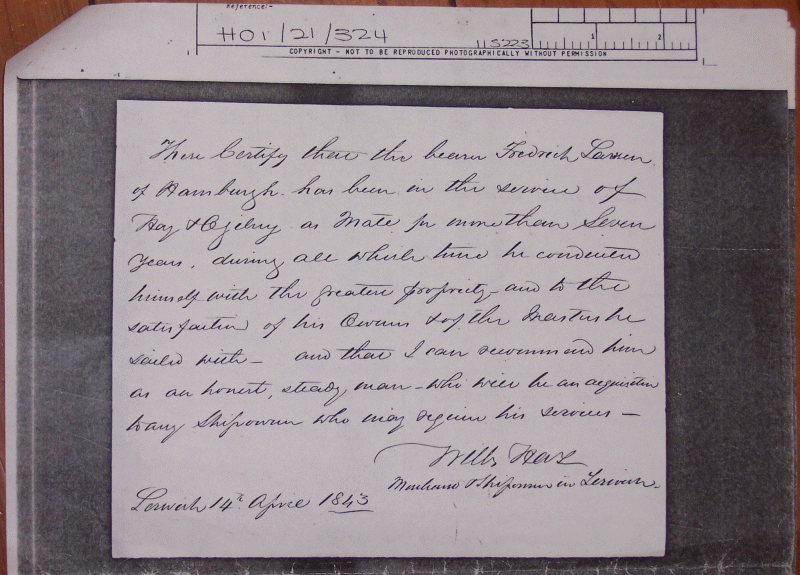 Reference:-
HO1/21/324
115223
1 2
COPYRIGHT - NOT TO BE REPRODUCED PHOTOGRAPHICALLY WITHOUT PERMISSION
These Certify that the bearer Fredrich Larsen
of Hamburgh has been in the service of
Hay & Ogilvy as Mate for more than Seven
years, during all which time he conducted
himself with the greatest propriety - and to the
satisfaction of his Owners & of the Masters he
sailed with - and that I can recommend him
as an honest, steady man - who will be an acquisition
to any Shipowner who may require his services -
Willm Hay
Merchant & Shipowner in Lerwick -
Lerwick 14th April 1843